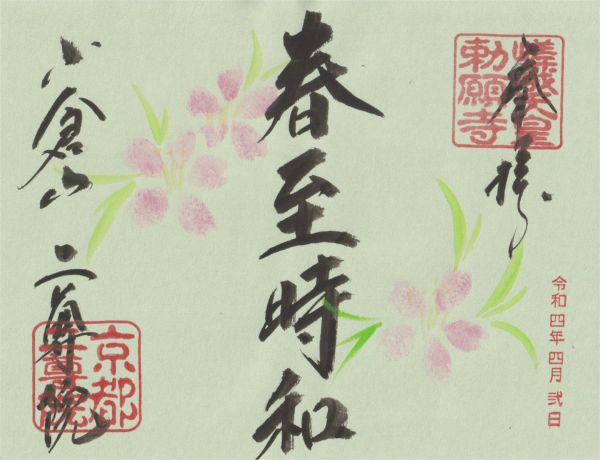 奉拝
嵯峨天皇
勅願寺
令和四年四月弐日
春至時和
小倉山 二尊院
京都
二尊院